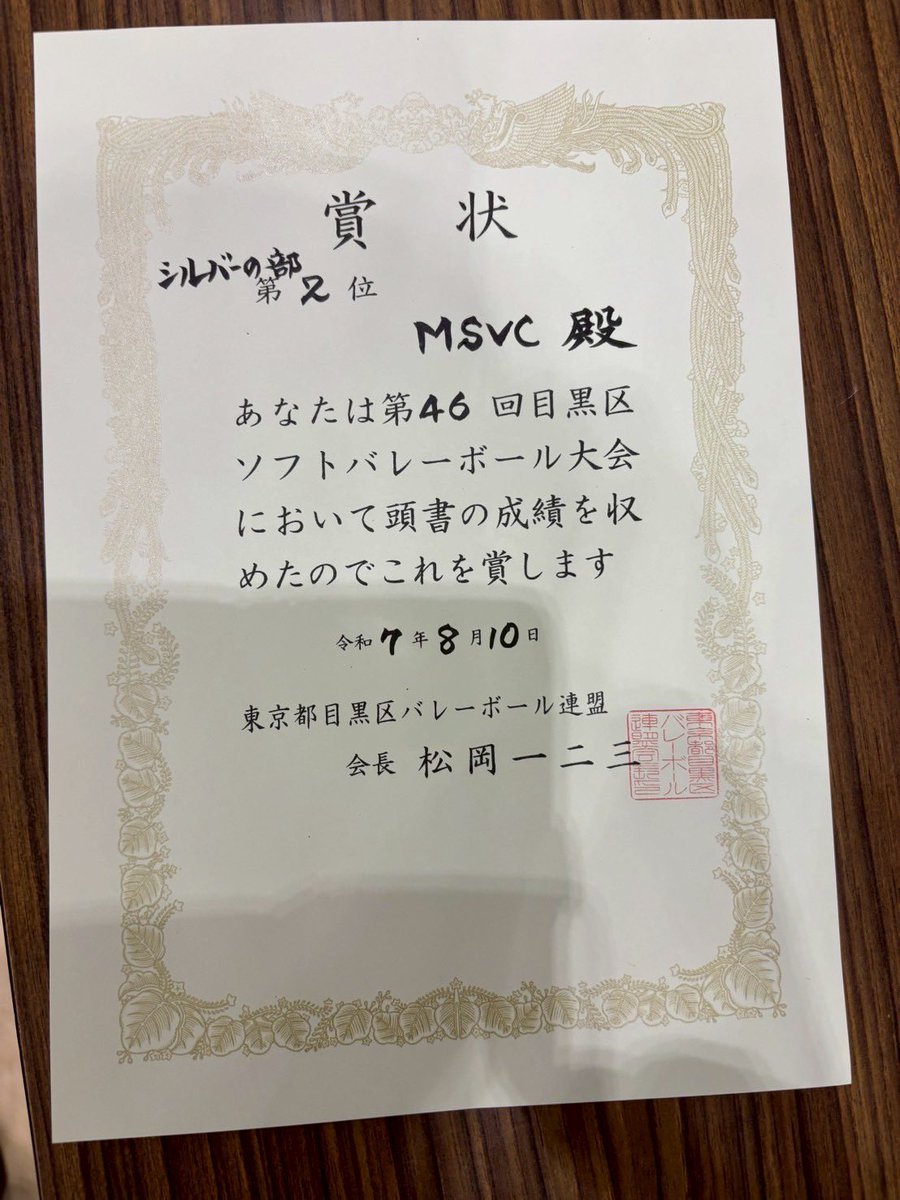 賞状
シルバーの部
第2位
MSVC 殿
あなたは第46回目黒区
ソフトバレーボール大会
において頭書の成績を収
めたのでこれを賞します
令和7年8月10日
東京都目黒区バレーボール連盟
会長 松岡一二三
東京都目黒区
バレーボール